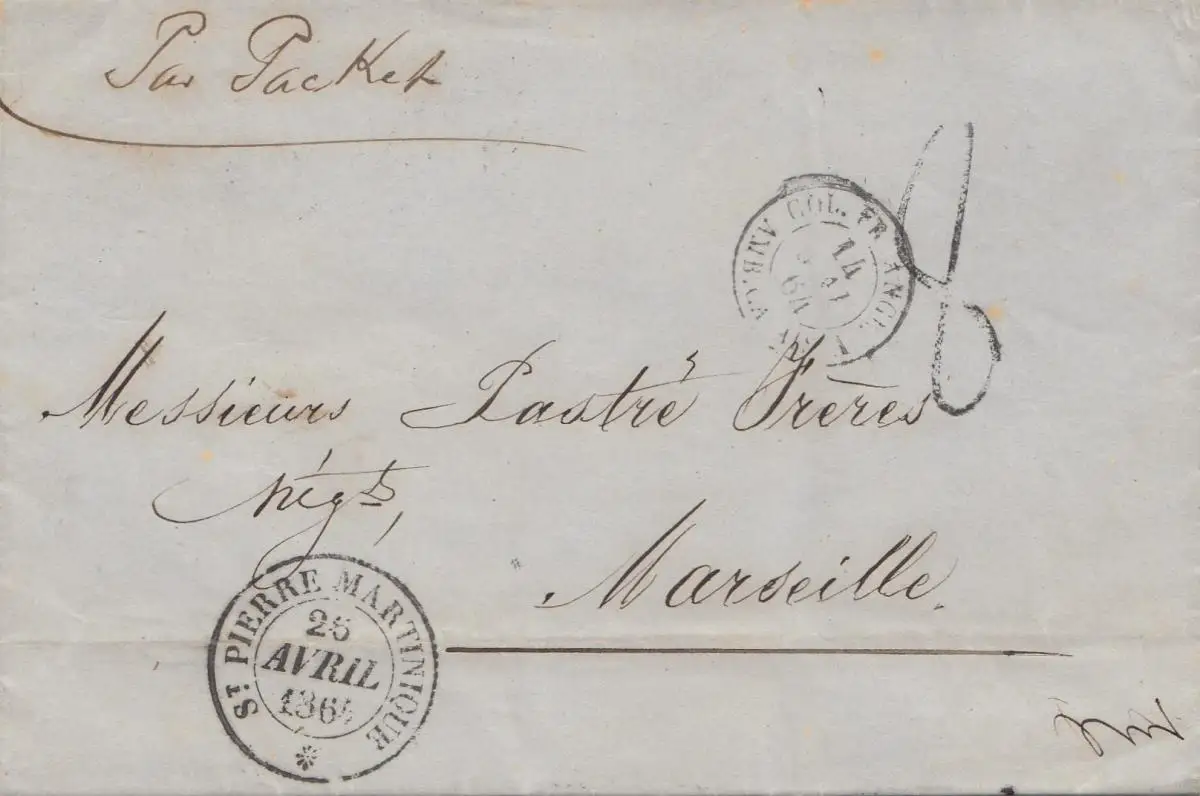 Par Packet
COL. FR. ANGL.
14
MAI
64
Messieurs Pastré Frères
Négts,
Marseille.
ST. PIERRE MARTINIQUE
26
AVRIL
1864